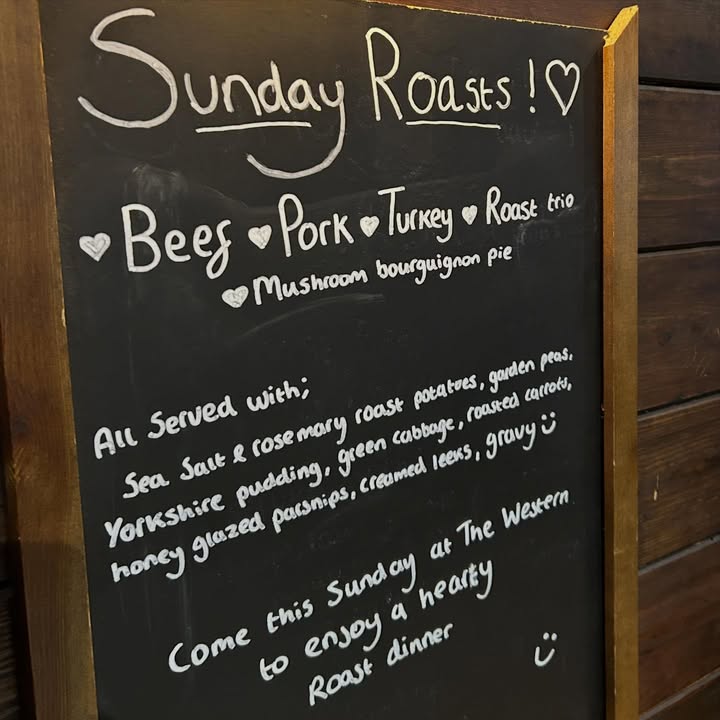 Sunday Roasts!♡
♥ Beef ♥ Pork ♥ Turkey ♥ Roast trio
♥ Mushroom bourguignon pie
All Served with;
Sea Salt & rosemary roast potatoes, garden peas,
Yorkshire pudding, green cabbage, roasted carrots,
honey glazed parsnips, creamed leeks, gravy ü
Come this Sunday at The Western
to enjoy a hearty
Roast dinner ü